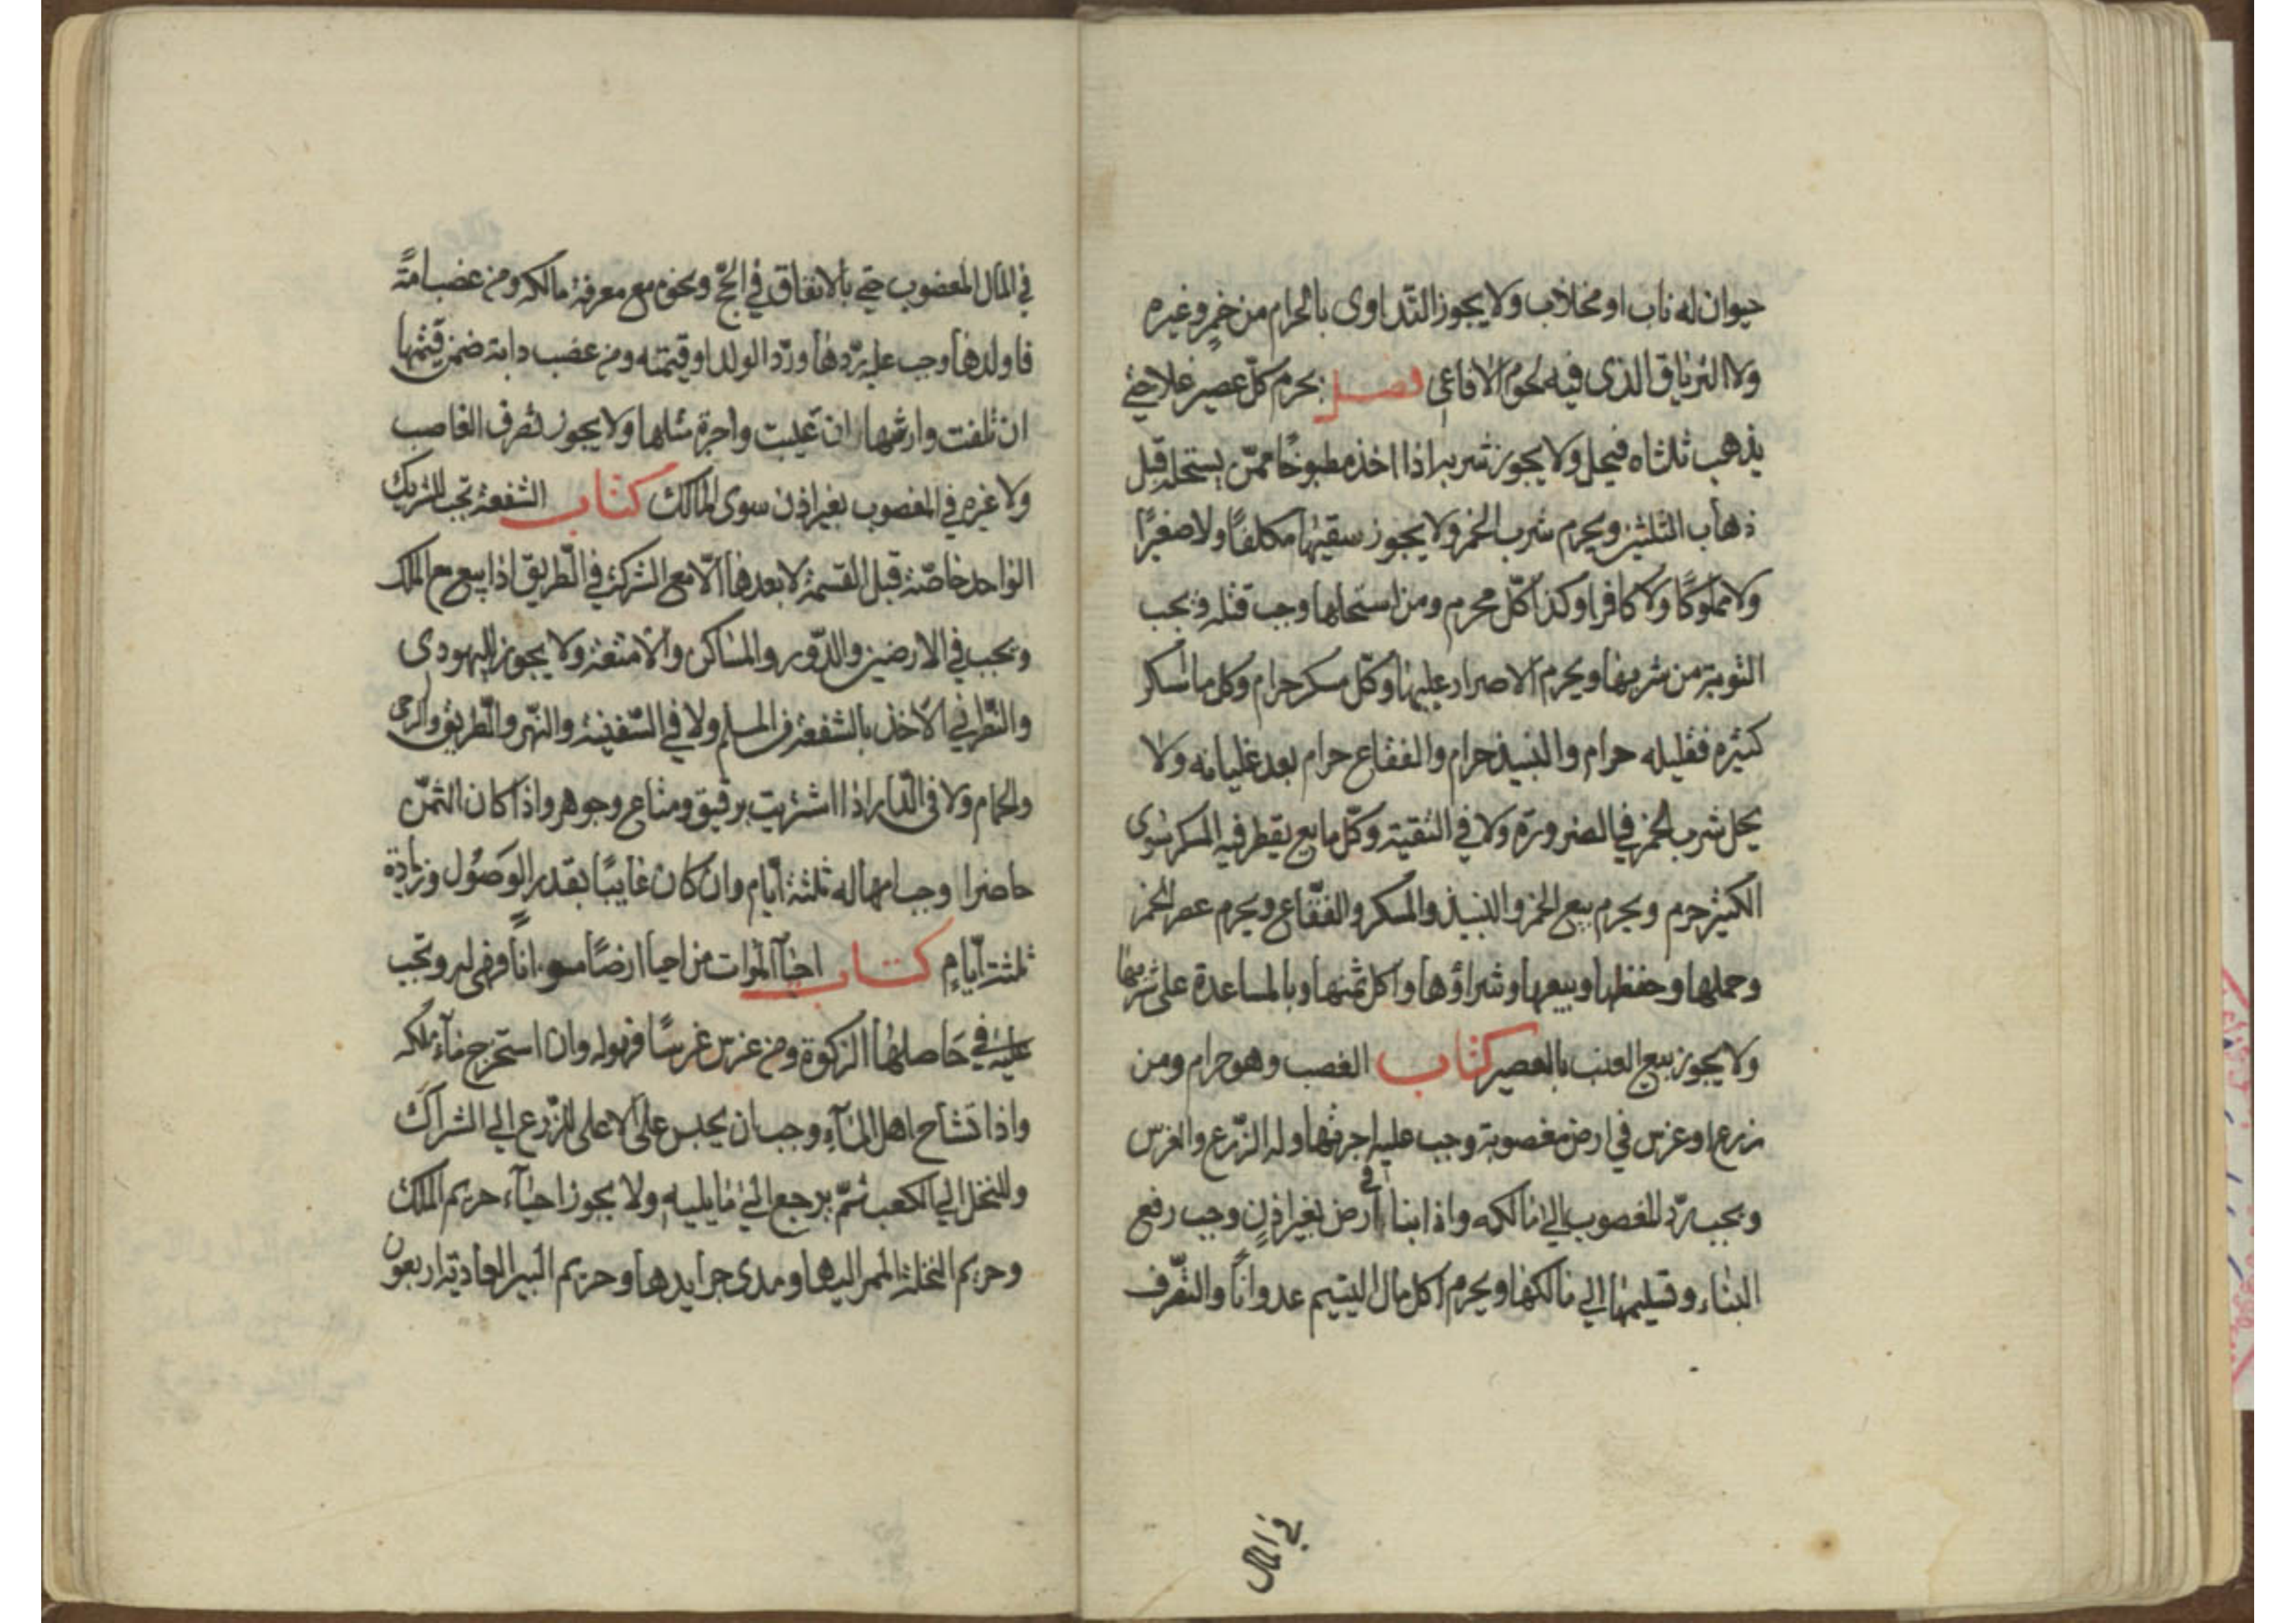 حيوان له ناب او مخلاب ولا يجوز التداوى بالحرام من خمر وغيره
ولا الترياق الذى فيه لحوم الافاعى فصل يحرم كل عصير غلا حتى
يذهب ثلثاه فيحل ولا يجوز شربه اذا اخذ مطبوخًا ممن يستحله قبل
ذهاب الثلثين ويحرم شرب الخمر ولا يجوز سقيها مكلفًا ولا صغيرًا
ولا مملوكًا ولا كافرا وكذا كل محرم ومن استحلها وجب قتله ويجب
التوبة من شربها ويحرم الاصرار عليها وكل مسكر حرام وكل ما اسكر
كثيره فقليله حرام والنبيذ حرام والفقاع حرام بعد غليانه ولا
يحل شرب الخمر في الضرورة ولا في التقية وكل مايع يقطر فيه المسكر سوى
الكثير حرم ويحرم بيع الخمر والنبيذ والمسكر والفقّاع ويحرم عصر الخمر
وحملها وحفظها وبيعها وشراؤها واكل ثمنها وبالمساعدة على شربها
ولا يجوز بيع العنب بالعصير كتاب الغصب وهو حرام ومن
زرع او غرس في ارض مغصوبة وجب عليه اجرتها وله الزّرع والغرس
ويجب ردّ المغصوب الى مالكه واذا بنا في ارض بغير اذنٍ وجب رفع
البناء وتسليمها الى مالكها ويحرم اكل مال اليتيم عدوانًا والتصّرف
في المال
في المال المغصوب حتى بالانفاق في الحجّ ونحوه مع معرفة مالكه ومن غصب امةً
فاولدها وجب عليه ردّها وردّ الولد او قيمته ومن غصب دابة ضمن قيمتها
ان تلفت وارشها ان عيبت واجرة مثلها ولا يجوز تصرف الغاصب
ولا غيره في المغصوب بغير اذن سوى المالك كتاب الشفعة تجب للشريك
الواحد خاصّة قبل القسمة لا بعدها الّا مع الشركة في الطّريق اذا بيع مع الملك
ويجب في الارضين والدّور والمساكن والامتعة ولا يجوز لليهودى
والنّصراني الاخذ بالشفعة من المسلم ولا في السّفينة والنهر والطّريق والرحى
والحمام ولا فى الدّار اذا اشتريت برقيق ومتاع وجوهر واذا كان الثمن
حاضرا وجب امهاله ثلثة ايّام وان كان غايبًا بقدر الوصول وزيادة
ثلثة ايّامٍ كتاب احيآ الموات من احيا ارضًا مواتًا فهى له وتجب
عليه في حاصلها الزكوة ومن غرس غرسًا فهو له وان استخرج مآء ملكه
واذا تشاح اهل المآء وجب ان يحبس على الاعلى للزّرع الى الشراك
وللنخل الى الكعب ثمّ يرجع الى ما يليه ولا يجوز احيآء حريم الملك
وحريم النخلة الممر اليها ومدى جرايدها وحريم البير العادية اربعون